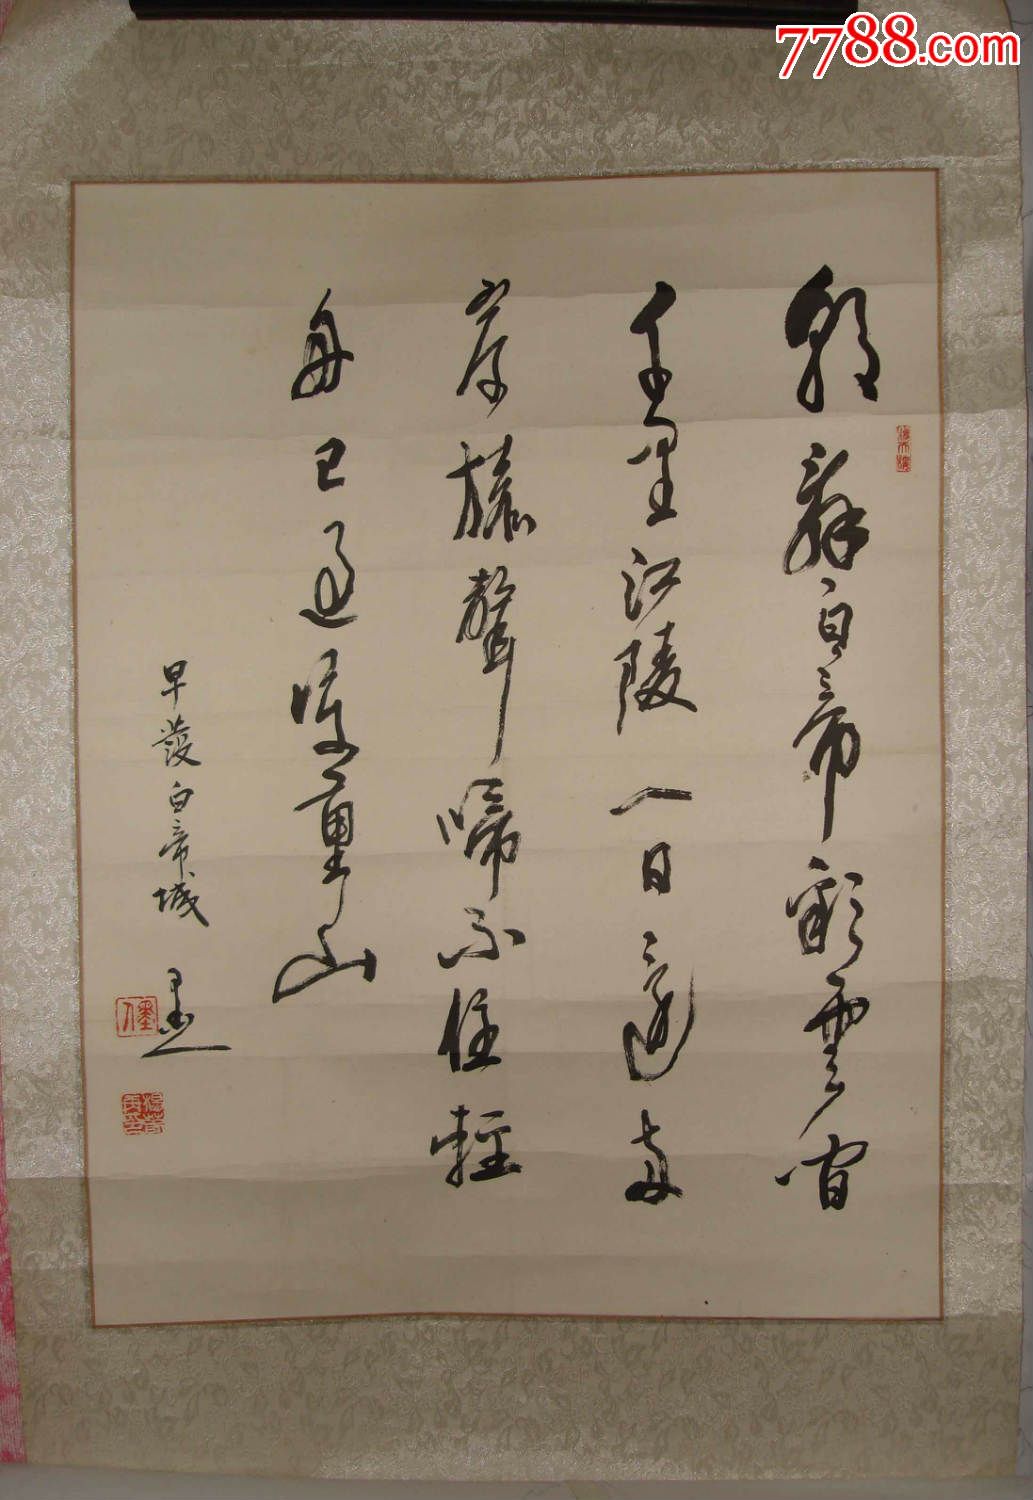 7788.com
朝辭白帝彩雲間
千里江陵一日還兩
岸猿聲啼不住輕
舟已過萬重山
早發白帝城